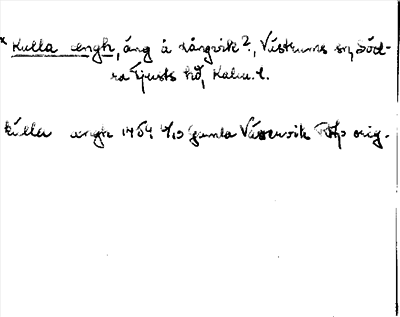 * Kulla engh, äng å Långvik?, Västrums sn, Söd-
ra Tjusts hd, Kalm. l.
kulla engh 1454 4/10 Gamla Västervik RAp orig.